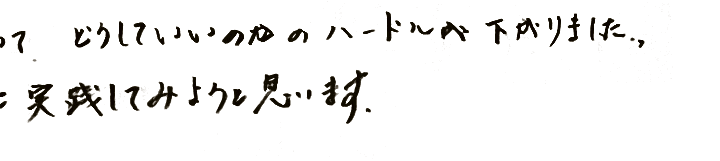 って どうしていいのかのハードルが下がりました。
に実践してみようと思います。